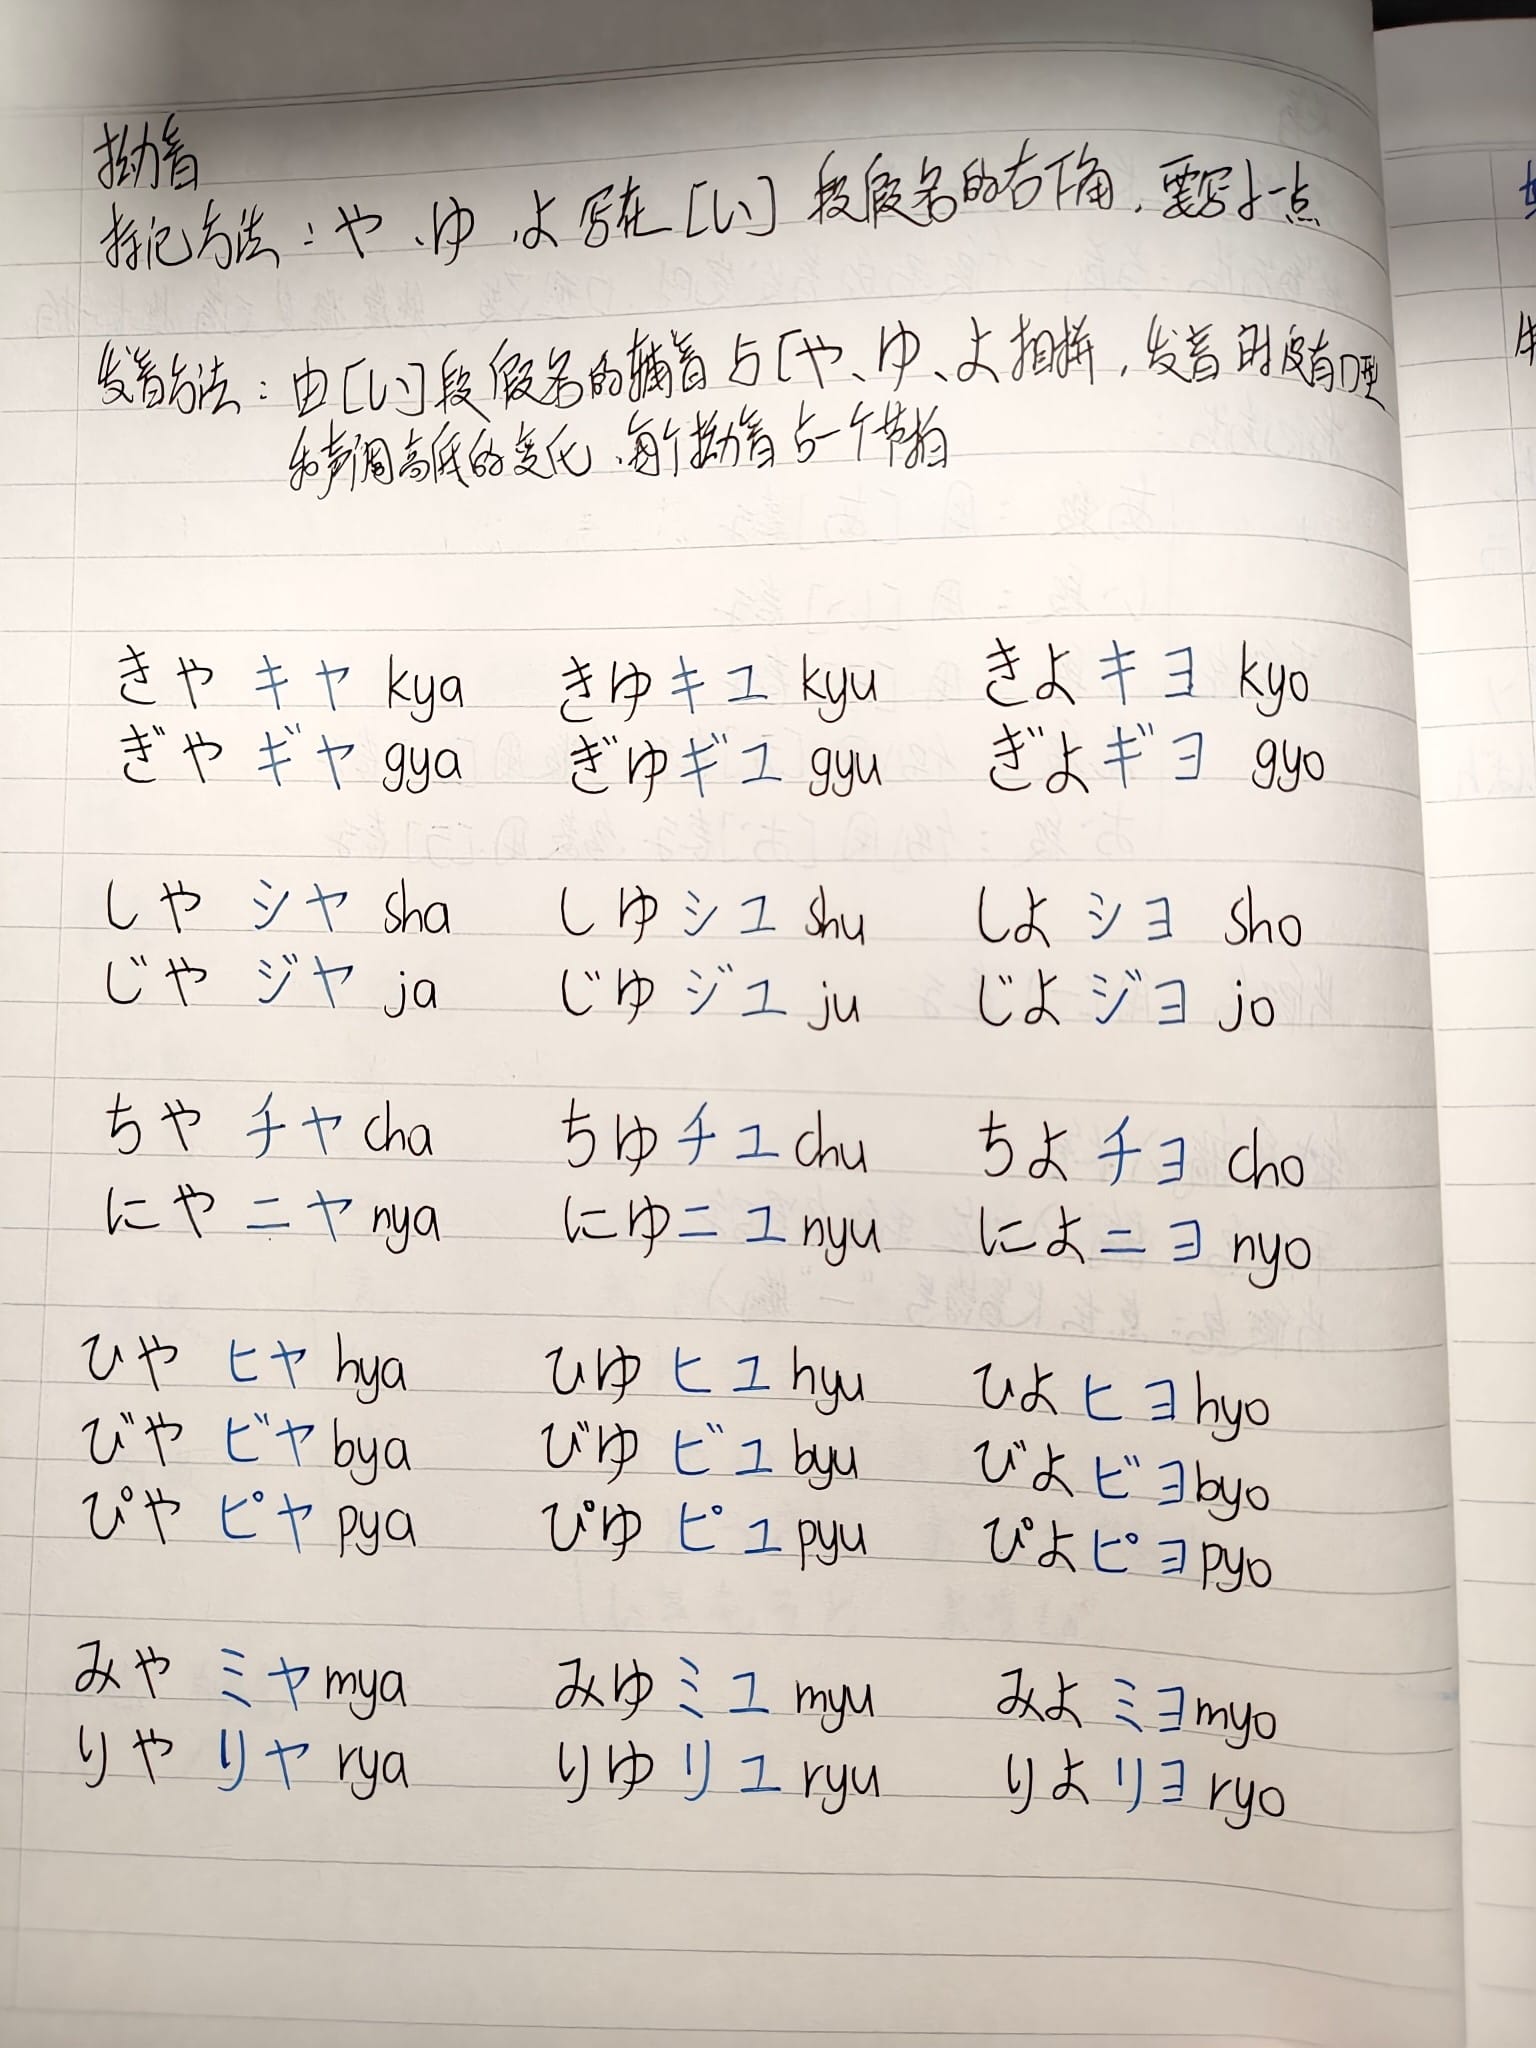 拗音
标记方法：や、ゆ、よ写在[い]段假名的右下角，要写小一点
发音方法：由[い]段假名的辅音与[や、ゆ、よ相拼，发音时没有口型
和声调高低的变化、每个拗音占一个节拍
きや キヤ kya きゆ キユ kyu きよ キヨ kyo
ぎや ギヤ gya ぎゆ ギユ gyu ぎよ ギヨ gyo
しや シヤ sha しゆ シユ shu しよ シヨ sho
じや ジヤ ja じゆ ジユ ju じよ ジヨ jo
ちや チヤ cha ちゆ チユ chu ちよ チヨ cho
にや ニヤ nya にゆ ニユ nyu によ ニヨ nyo
ひや ヒヤ hya ひゆ ヒユ hyu ひよ ヒヨ hyo
びや ビヤ bya びゆ ビユ byu びよ ビヨ byo
ぴや ピヤ pya ぴゆ ピユ pyu ぴよ ピヨ pyo
みや ミヤ mya みゆ ミユ myu みよ ミヨ myo
りや リヤ rya りゆ リユ ryu りよ リヨ ryo